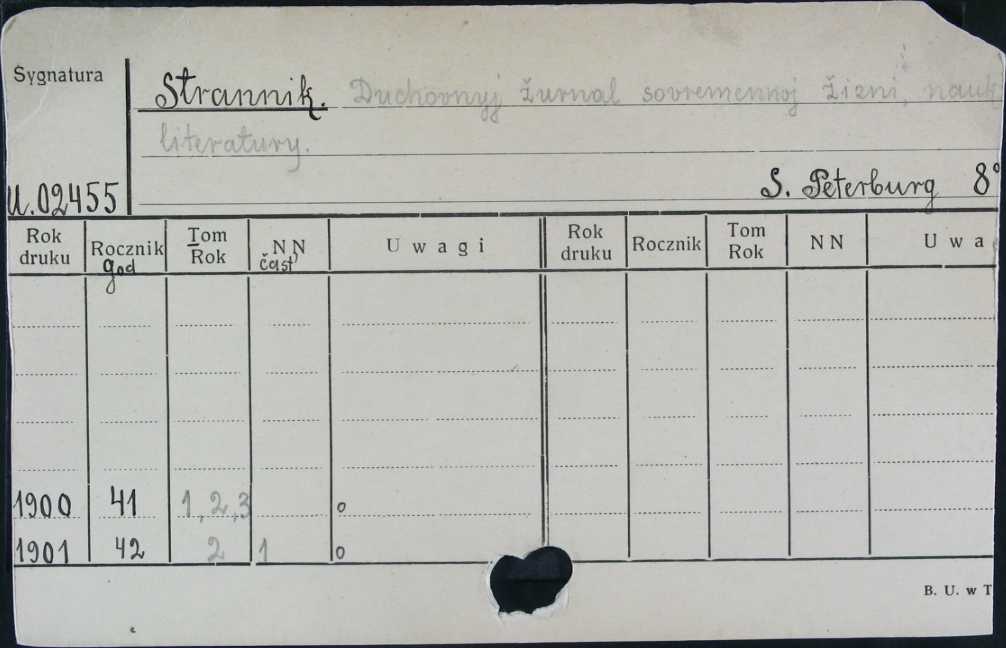 Sygnatura
Strannik. Duchovnyj žurnal sovremennoj žizni, nauk
literatury.
U.02455
S. Peterburg 8°
Rok druku Rocznik god Tom Rok NN čast' Uwagi Rok druku Rocznik Tom Rok NN Uwa
1900 41 1, 2, 3 o
1901 42 2 1 o
B. U. w T